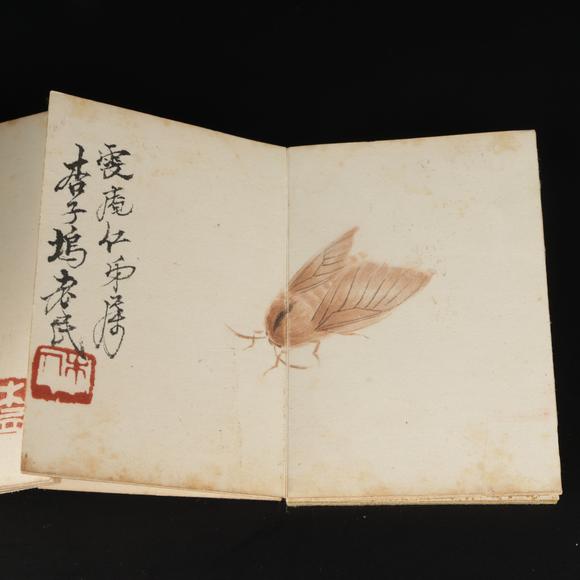 雯庵仁弟属
杏子塢老民
木人